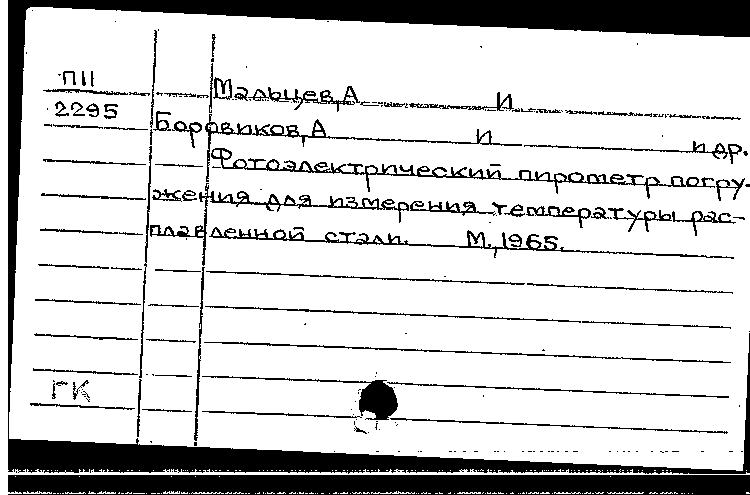 П11
Мальцев, А И
2295
Боровиков, А И и др.
Фотоэлектрический пирометр погру-
жения для измерения температуры рас-
плавленной стали. М., 1965.
ГК